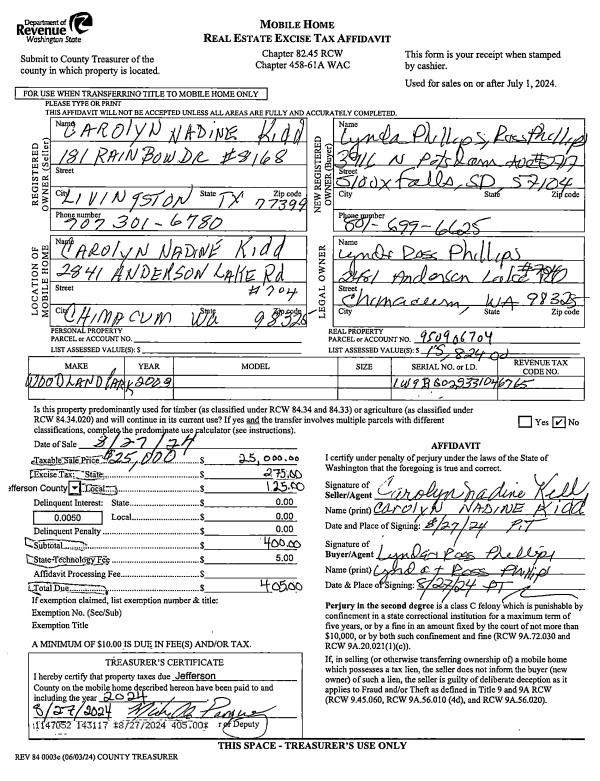 Department of
Revenue
Washington State
MOBILE HOME
REAL ESTATE EXCISE TAX AFFIDAVIT
Submit to County Treasurer of the
county in which property is located.
Chapter 82.45 RCW
Chapter 458-61A WAC
This form is your receipt when stamped
by cashier.
Used for sales on or after July 1, 2024.
FOR USE WHEN TRANSFERRING TITLE TO MOBILE HOME ONLY
PLEASE TYPE OR PRINT
THIS AFFIDAVIT WILL NOT BE ACCEPTED UNLESS ALL AREAS ARE FULLY AND ACCURATELY COMPLETED.
REGISTERED
OWNER (Seller)
Name CAROLYN NADINE Kidd
181 RAINBOW DR #8168
Street
City LIVINGSTON State TX Zip code 77399
Phone number 707 301-6780
NEW REGISTERED
OWNER (Buyer)
Name Lynda Phillips, Ross Phillips
3916 N Potsdam
Street
Sioux Falls, SD, 57104
City State Zip code
Phone number 801-699-6625
LOCATION OF
MOBILE HOME
Name CAROLYN NADINE Kidd
2841 ANDERSON LAKE Rd
Street #704
City CHIMACUM State Wa Zip code 98325
LEGAL OWNER
Name Ross Phillips
Anderson Lake
Street
Chimacum, WA 98325
City State Zip code
PERSONAL PROPERTY
PARCEL or ACCOUNT NO.
LIST ASSESSED VALUE(S): $
REAL PROPERTY
PARCEL or ACCOUNT NO. 950906704
LIST ASSESSED VALUE(S): $ 15,824 00
MAKE YEAR MODEL SIZE SERIAL NO. or I.D. REVENUE TAX
CODE NO.
WOODLAND PARK 2009 1W9BB029331046765
Is this property predominantly used for timber (as classified under RCW 84.34 and 84.33) or agriculture (as classified
under RCW 84.34.020) and will continue in its current use? If yes and the transfer involves multiple parcels with different
classifications, complete the predominate use calculator (see instructions).
Yes ✓ No
Date of Sale 8/27/24
Taxable Sale Price $25,000 $ 25,000.00
Excise Tax: State $ 275.00
Jefferson County Local $ 125.00
Delinquent Interest: State $ 0.00
0.0050 Local $ 0.00
Delinquent Penalty $ 0.00
Subtotal $ 400.00
State Technology Fee $ 5.00
Affidavit Processing Fee $
Total Due $ 405.00
If exemption claimed, list exemption number & title:
Exemption No. (Sec/Sub)
Exemption Title
A MINIMUM OF $10.00 IS DUE IN FEE(S) AND/OR TAX.
TREASURER'S CERTIFICATE
I hereby certify that property taxes due Jefferson
County on the mobile home described hereon have been paid to and
including the year 2024
8/27/2024
1147052 143117 8/27/2024 405.00 r or Deputy
AFFIDAVIT
I certify under penalty of perjury under the laws of the State of
Washington that the foregoing is true and correct.
Signature of
Seller/Agent Carolyn Nadine Kidd
Name (print) CAROLYN NADINE Kidd
Date and Place of Signing: 8/27/24 P.T
Signature of
Buyer/Agent Lynda Ross Phillips
Name (print) Lynda + Ross Phillips
Date & Place of Signing: 8/27/24 PT
Perjury in the second degree is a class C felony which is punishable by
confinement in a state correctional institution for a maximum term of
five years, or by a fine in an amount fixed by the court of not more than
$10,000, or by both such confinement and fine (RCW 9A.72.030 and
RCW 9A.20.021(1)(c)).
If, in selling (or otherwise transferring ownership of) a mobile home
which possesses a tax lien, the seller does not inform the buyer (new
owner) of such a lien, the seller is guilty of deliberate deception as it
applies to Fraud and/or Theft as defined in Title 9 and 9A RCW
(RCW 9.45.060, RCW 9A.56.010 (4d), and RCW 9A.56.020).
THIS SPACE - TREASURER'S USE ONLY
REV 84 0003e (06/03/24) COUNTY TREASURER